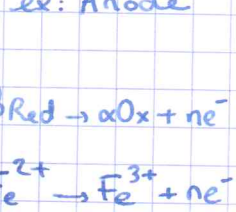 ex: Anode
Red → αOx + ne⁻
e²⁺ → Fe³⁺ + ne⁻